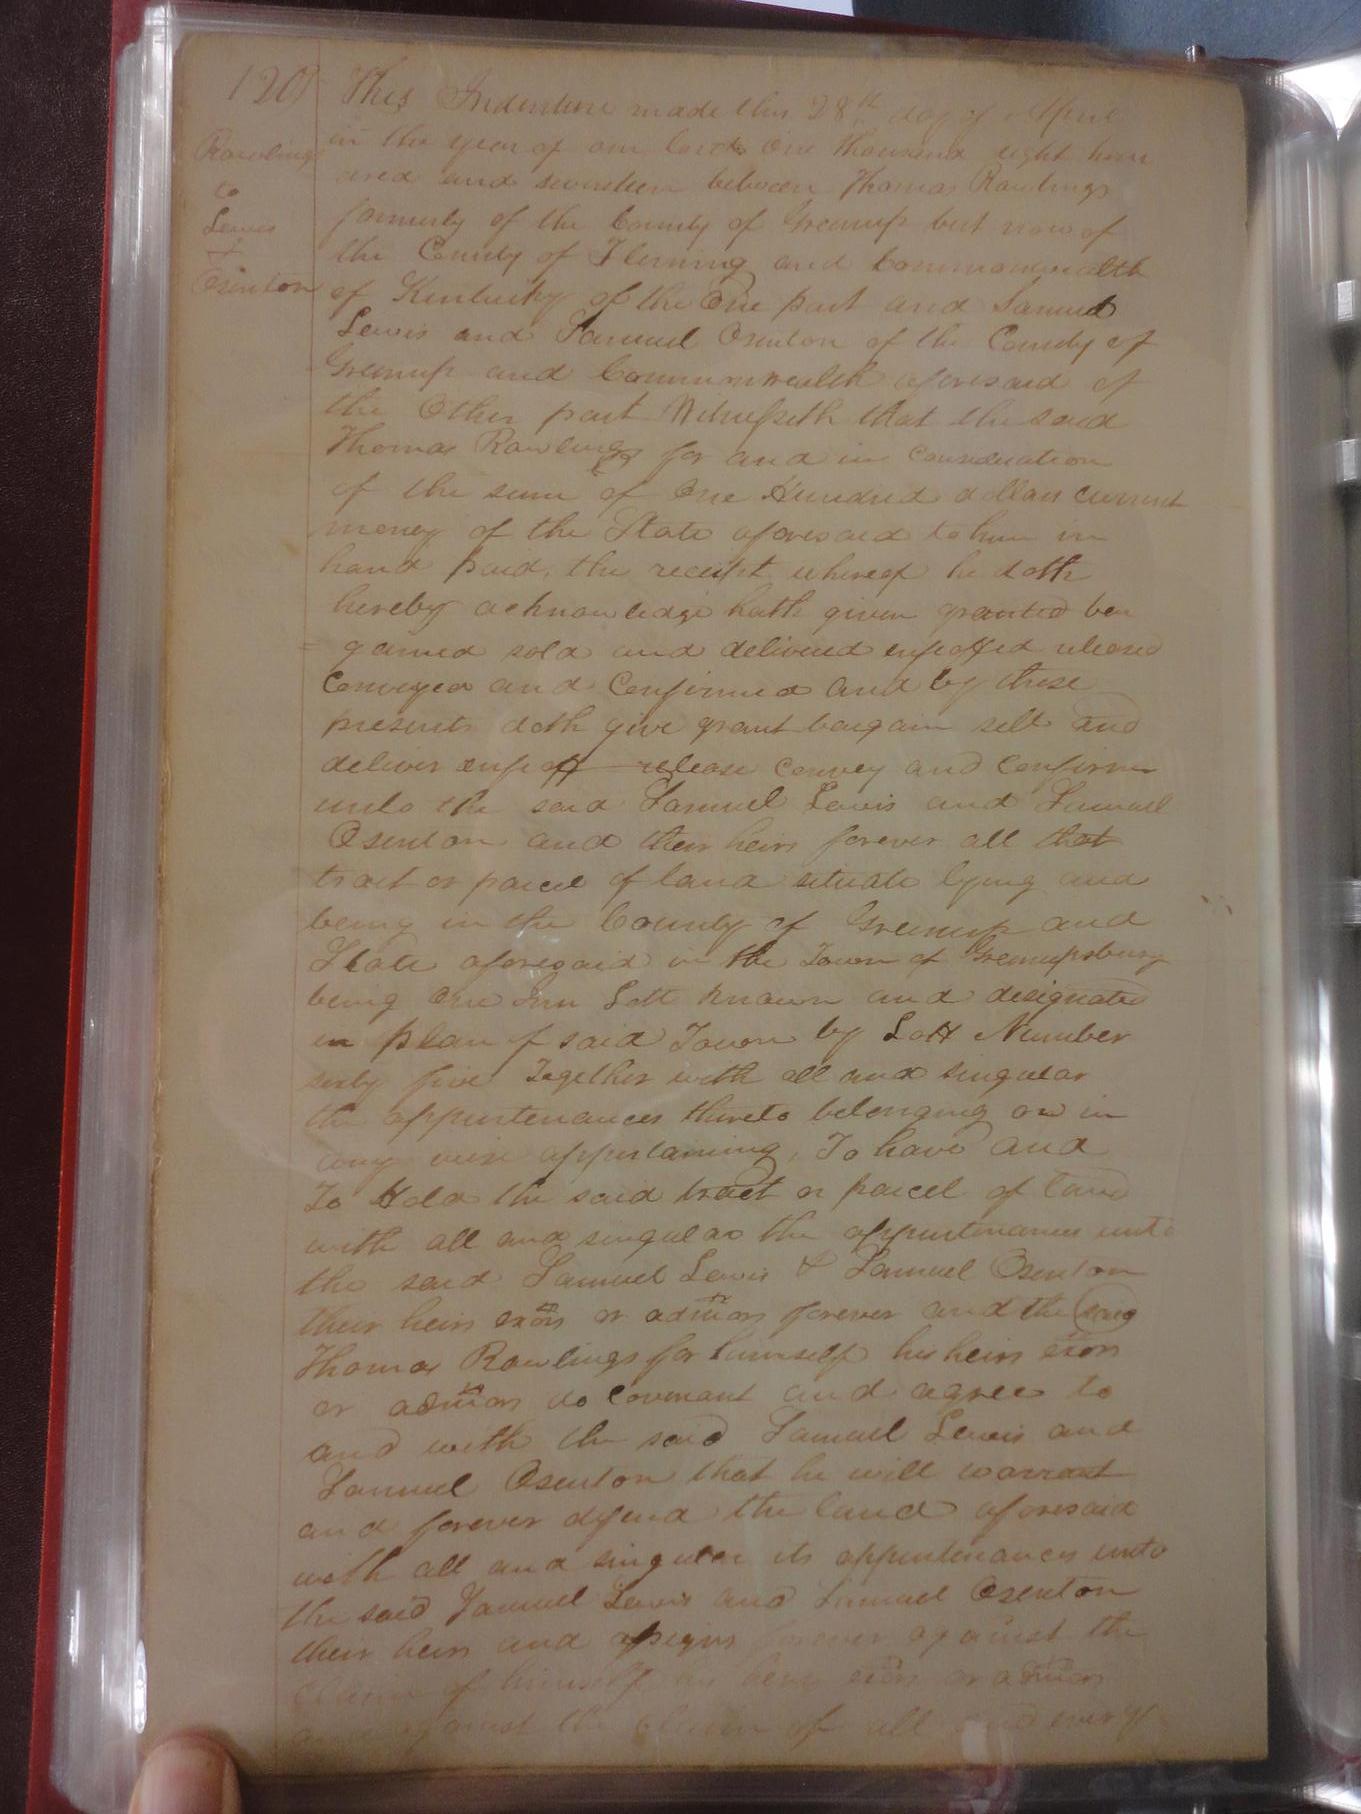 120
Rawlings
to
Lewis
+
Osenton
This Indenture made this 28th day of April
in the year of our lord One thousand eight hun
dred and seventeen between Thomas Rawlings
formerly of the County of Greenup but now of
the County of Fleming and Commonwealth
of Kentucky of the One part and Samuel
Lewis and Samuel Osenton of the County of
Greenup and Commonwealth aforesaid of
the Other part Witnesseth that the said
Thomas Rawlings for and in Consideration
of the sum of One Hundred dollars current
money of the State aforesaid to him in
hand paid, the receipt whereof he doth
hereby acknowledge hath given granted bar
= gained sold and delivered enfeoffed released
Conveyed and Confirmed and by these
presents doth give grant bargain sell and
deliver enfeoff release Convey and Confirm
unto the said Samuel Lewis and Samuel
Osenton and their heirs forever all that
tract or parcel of land situate lying and
being in the County of Greenup and
State aforesaid in the Town of Greenupsburg
being One Inn Lott known and designated
in plan of said Town by Lott Number
sixty five Together with all and singular
the appurtenances thereto belonging or in
any wise appertaining, To have and
To Hold the said tract or parcel of land
with all and singular the appurtenances unto
the said Samuel Lewis & Samuel Osenton
their heirs exors or admors forever and the said
Thomas Rawlings for himself his heirs exors
or admors do Covenant and agree to
and with the said Samuel Lewis and
Samuel Osenton that he will warrant
and forever defend the land aforesaid
with all and singular its appurtenances unto
the said Samuel Lewis and Samuel Osenton
their heirs and assigns forever against the
Claim of himself his heirs exors or admors
and against the Claim of all and every